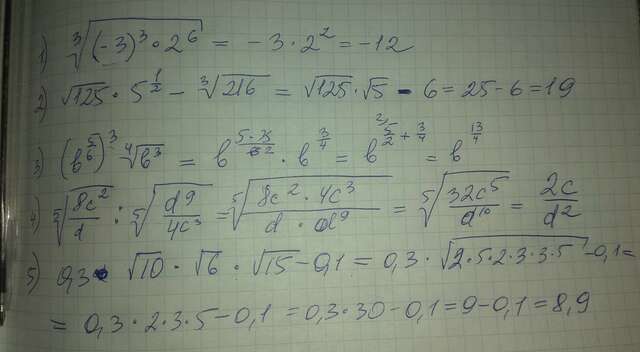 1) ∛((-3)³ · 2⁶) = -3 · 2² = -12
2) √125 · 5^(1/2) - ∛216 = √125 · √5 - 6 = 25 - 6 = 19
3) (b^(5/6))³ ∜(b³) = b^((5·3)/(6 2)) · b^(3/4) = b^(5/2 + 3/4) = b^(13/4)
4) ⁵√(8c²/d) : ⁵√(d⁹/4c³) = ⁵√((8c² · 4c³)/(d · d⁹)) = ⁵√(32c⁵/d¹⁰) = 2c/d²
5) 0,3 · √10 · √6 · √15 - 0,1 = 0,3 · √(2·5·2·3·3·5) - 0,1 =
= 0,3 · 2 · 3 · 5 - 0,1 = 0,3 · 30 - 0,1 = 9 - 0,1 = 8,9